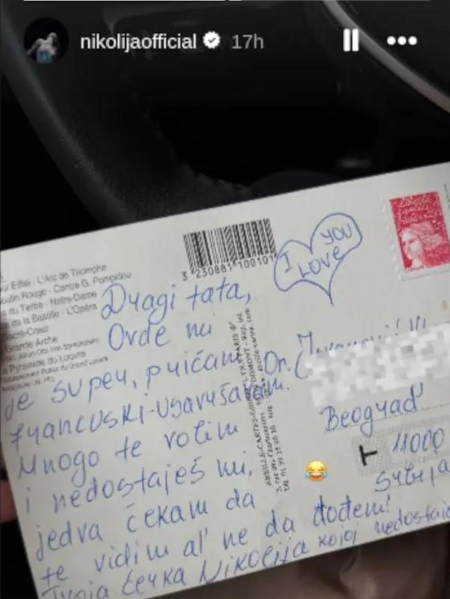 nikolijaofficial 17h
ur Eiffel - L'Arc de Triomphe
oulin Rouge - Centre G. Pompidou
e du Tertre - Notre-Dame
de la Bastille - L'Opéra
Sacré-Cœur
Grande Arche
a Pyramide du Louvre
3 230881 100101
I LOVE YOU
Dragi tata,
Ovde mi
je super, pričam
francuski-usavršavam.
Mnogo te volim
i nedostaješ mi,
jedva čekam da
te vidim al' ne da dođem!
Tvoja ćerka Nikolija kojoj nedostaje
Dr.
Beograd
11000
Srbija
T